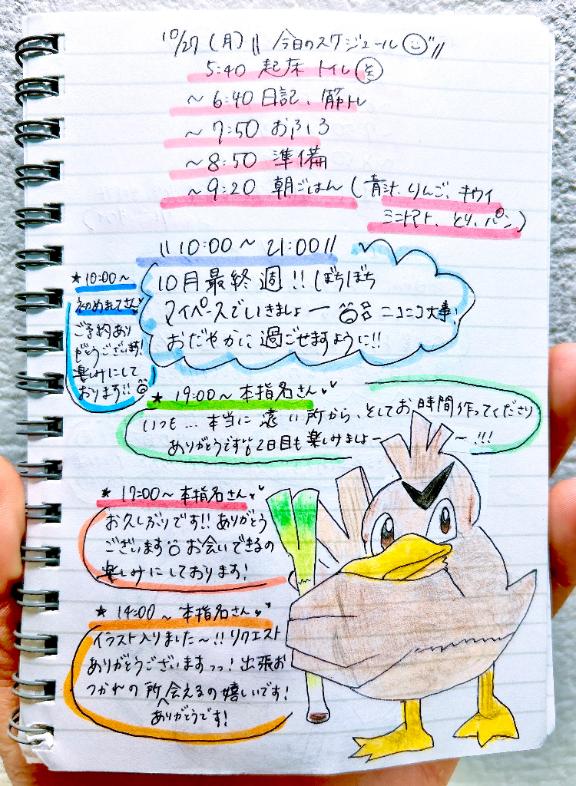 10/27（月）\\ 今日のスケジュール //
5:40 起床 トイレ
～6:40 日記、筋トレ
～7:50 おふろ
～8:50 準備
～9:20 朝ごはん（青汁、りんご、キウイ
ミニトマト、とり、パン）
\\ 10:00 ～ 21:00 //
10月最終週!! ぼちぼち
マイペースでいきましょー ニコニコ大事!
おだやかに過ごせますように!!
★10:00～
初めましてさん
ご予約あり
がとうございます!
楽しみにして
おります!!
★ 19:00～ 本指名さん
いつも… 本当に遠い所から、そしてお時間作ってくださり
ありがとうです 2日目も楽しみましょー～!!!
★ 17:00～ 本指名さん
お久しぶりです!! ありがとう
ございます お会いできるの
楽しみにしております!
★ 14:00～ 本指名さん
イラスト入りました～!! リクエスト
ありがとうございますっっ! 出張お
つかれの所 会えるの嬉しいです!
ありがとうです!